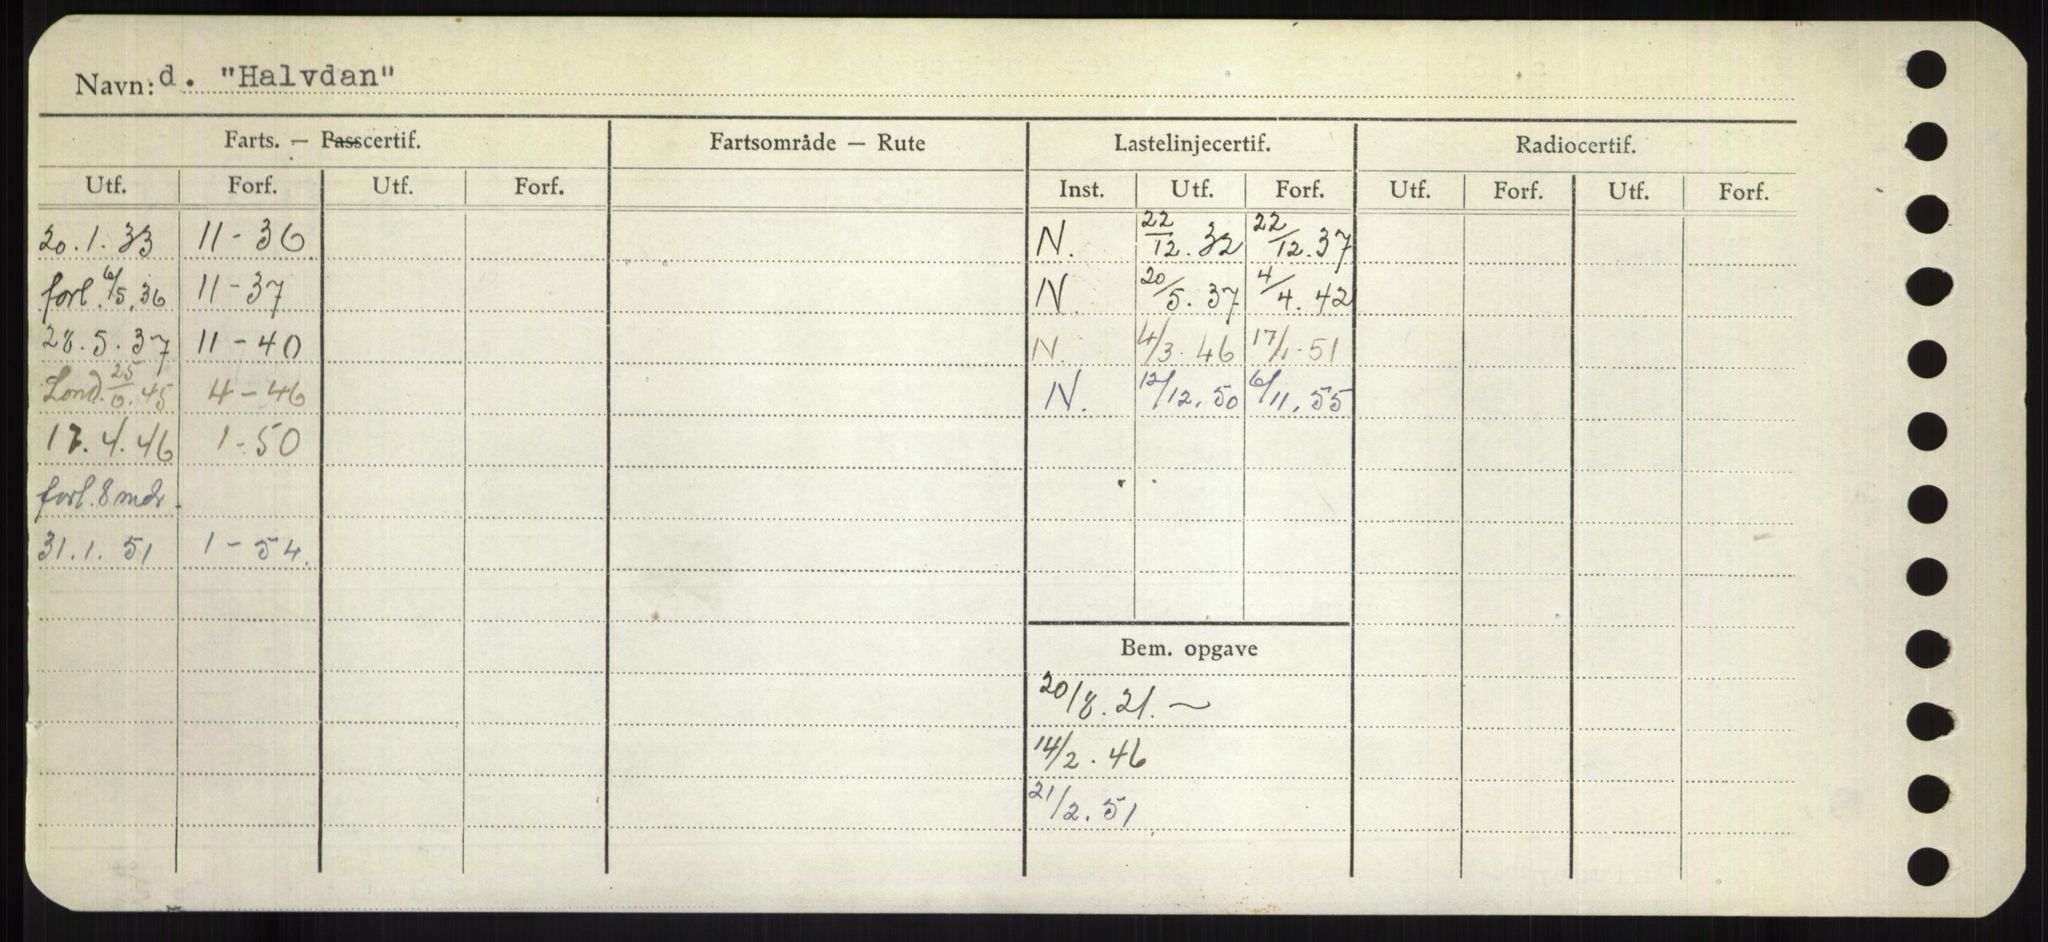 Navn: d. "Halvdan"
Farts. — Passcertif. Fartsområde — Rute Lastelinjecertif. Radiocertif.
Utf. Forf. Utf. Forf. Inst. Utf. Forf. Utf. Forf. Utf. Forf.
20.1.33 11-36 N. 22/12.32 22/12.37
forl. 6/5.36 11-37 N. 20/5.37 4/4.42
28.5.37 11-40 N. 4/3.46 17/1-51
Lond. 4-46 N. 12/12.50 6/11.55
17.4.46 1-50
forl. 8 mdr.
31.1.51 1-54.
Bem. opgave
20/8.21.~
14/2.46
21/2.51